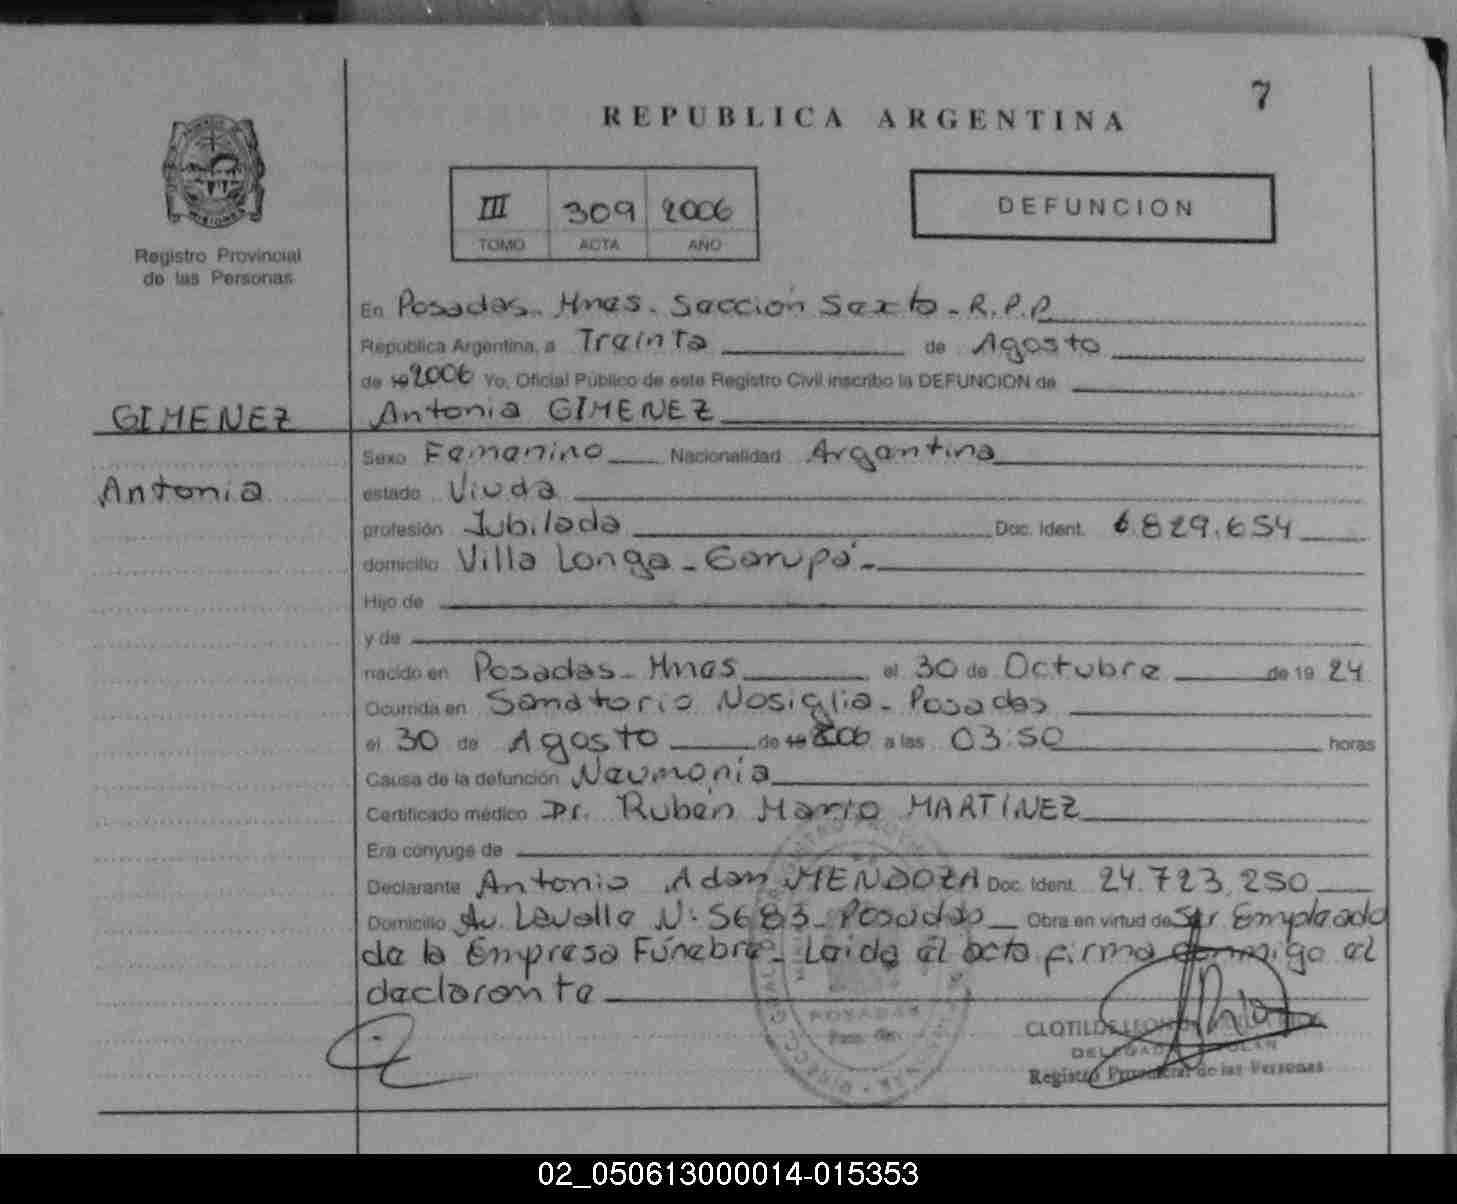 7
REPUBLICA ARGENTINA
III 309 2006
TOMO ACTA AÑO
DEFUNCION
Registro Provincial
de las Personas
En Posadas. Mnes. Sección Sexta - R.P.P.
República Argentina, a Treinta de Agosto
de 19 2006 Yo, Oficial Público de este Registro Civil inscribo la DEFUNCION de
GIMENEZ Antonia GIMENEZ
Sexo Femenino Nacionalidad Argentina
Antonia estado Viuda
profesión Jubilada Doc. Ident. 6.829.654
domicilio Villa Longa - Garupá -
Hijo de
y de
nacido en Posadas - Mnes el 30 de Octubre de 19 24
Ocurrida en Sanatorio Nosiglia - Posadas
el 30 de Agosto de 19 2006 a las 03:50 horas
Causa de la defunción Neumonía
Certificado médico Dr. Ruben Mario MARTINEZ
Era cónyuge de
Declarante Antonio Adan MENDOZA Doc. Ident. 24.723.250
Domicilio Av. Lavalle N: 5683 - Posadas Obra en virtud de Ser Empleado
de la Empresa Fúnebre - Leida el acta firma conmigo el
declarante
POSADAS
CLOTILDE
Registro Provincial de las Personas
02_050613000014-015353